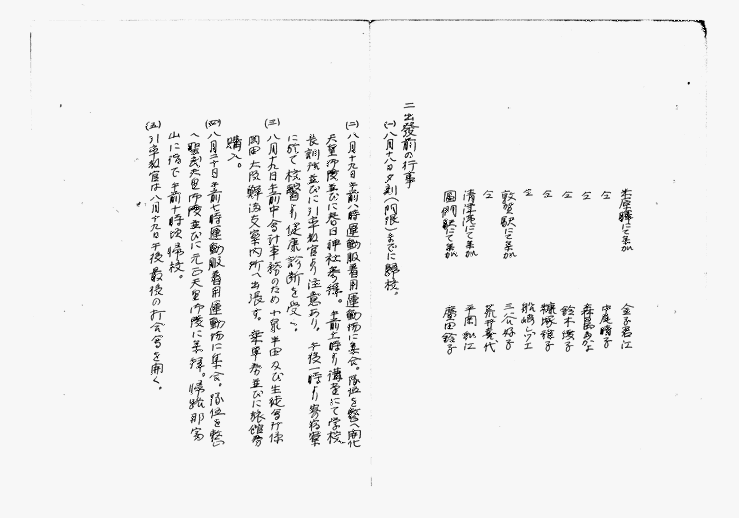 米原驛にて参加 金子君江
仝 中庭晴子
仝 森島かよ
仝 鈴木淺子
仝 糠塚律子
仝 松崎シヅエ
敦賀駅にて参加 三谷保子
仝 荒井喜代
清津港にて参加 平岡和江
圖們駅にて参加 慶田鈴子
二 出發前の行事
(一) 八月十八日夕刻(門限)までに歸校。
(二) 八月十九日午前八時運動服着用運動場に集合。隊伍を整へ開化
天皇御陵並びに春日神社参拝。午前十時より講堂にて学校
長訓話並びに引率教官より注意あり。午後一時より寄宿寮
に於て校醫より健康診断を受く。
(三) 八月十九日午前中会計事務のため小泉半田及び生徒会計係
岡田大阪鮮満支案内所へ出張す。乗車券並びに旅館券
購入。
(四) 八月二十日午前七時運動服着用運動場に集合。隊伍を整
へ聖武天皇御陵並びに元正天皇御陵に参拝。帰途
山に詣で午前十時頃帰校。
(五) 引率教官は八月十九日午後最後の打合会を開く。